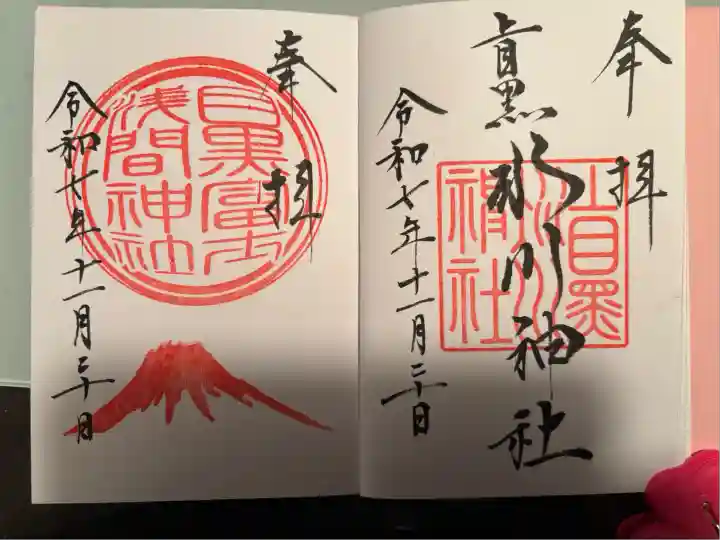 奉拝
上目黒氷川神社
上目黒
氷川
神社
令和七年十一月二十日
奉拝
目黒富士
浅間神社
令和七年十一月二十日